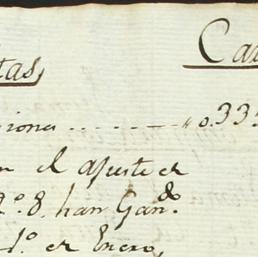 tas,
Ca
iones ........ " 0.335
el ajuste de
2º. 8. han Gandº.
1º. de Enero,